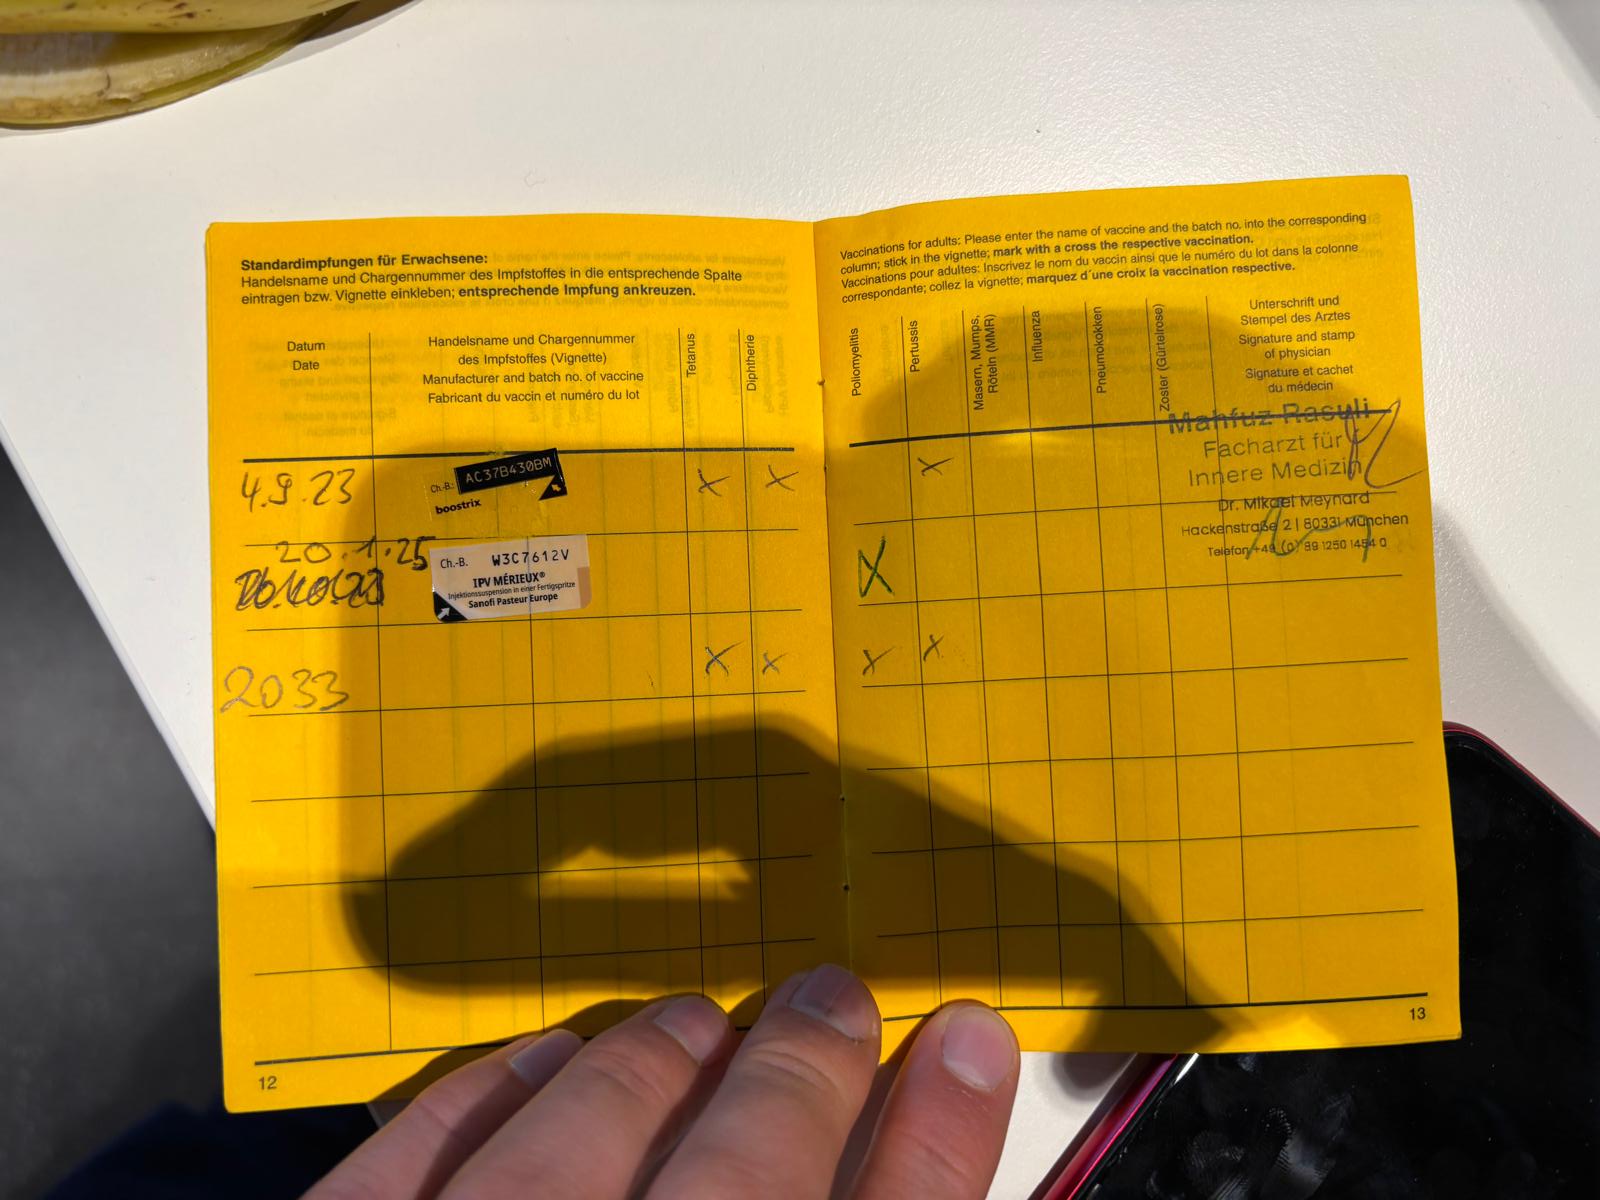 Standardimpfungen für Erwachsene:
Handelsname und Chargennummer des Impfstoffes in die entsprechende Spalte
eintragen bzw. Vignette einkleben; entsprechende Impfung ankreuzen.
Datum
Date
Handelsname und Chargennummer
des Impfstoffes (Vignette)
Manufacturer and batch no. of vaccine
Fabricant du vaccin et numéro du lot
Tetanus
Diphtherie
4.9.23
Ch.-B.: AC37B430BM
boostrix
X X
20.1.25
Ch.-B. W3C7612V
IPV MÉRIEUX®
Injektionssuspension in einer Fertigspritze
Sanofi Pasteur Europe
2033
X X
12
Vaccinations for adults: Please enter the name of vaccine and the batch no. into the corresponding
column; stick in the vignette; mark with a cross the respective vaccination.
Vaccinations pour adultes: Inscrivez le nom du vaccin ainsi que le numéro du lot dans la colonne
correspondante; collez la vignette; marquez d´une croix la vaccination respective.
Poliomyelitis
Pertussis
Masern, Mumps,
Röteln (MMR)
Influenza
Pneumokokken
Zoster (Gürtelrose)
Unterschrift und
Stempel des Arztes
Signature and stamp
of physician
Signature et cachet
du médecin
X
Mahfuz Rasuli
Facharzt für
Innere Medizin
X
Dr. Mikael Meynard
Hackenstraße 2 | 80331 München
Telefon +49 (0) 89 1250 1454 0
X X
13